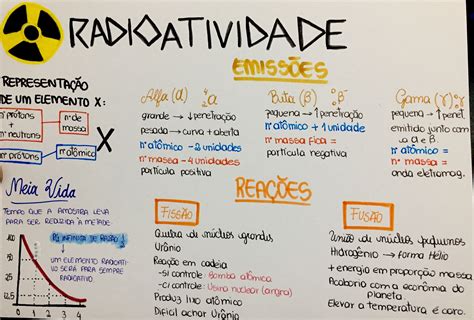 RADIOATIVIDADE
EMISSÕES
REPRESENTAÇÃO
DE UM ELEMENTO X:
nº prótons
+
nº neutrons
nº de
massa
X
nº prótons
nº atômico
Alfa (α) ⁴₂α
grande → ↓ penetração
pesada → curva + aberta
nº atômico - 2 unidades
nº massa - 4 unidades
partícula positiva
Beta (β) ⁰₋₁β
pequena → 1 penetração
nº atômico + 1 unidade
nº massa fica =
partícula negativa
Gama (γ) ⁰₀γ
pequena → ↑ penet.
emitido junto com
α e β.
nº atômico =
nº massa =
onda eletromag.
Meia Vida
TEMPO QUE A AMOSTRA LEVA
PARA SER REDUZIDA À METADE.
PG INFINITA DE RAZÃO ½
↓
UM ELEMENTO RADIOATI-
VO SERÁ PARA SEMPRE
RADIOATIVO.
100
50
25
12,5
REAÇÕES
FISSÃO
Quebra de núcleos grandes
Urânio
Reação em cadeia
-s/ controle: Bomba atômica
-c/ controle: Usina nuclear (angra)
Produz lixo atômico
Difícil achar Urânio
FUSÃO
União de núcleos pequenos
Hidrogênio → forma Hélio
+ energia em proporção massa
Acabaria com a economia do
planeta.
Elevar a temperatura é caro.